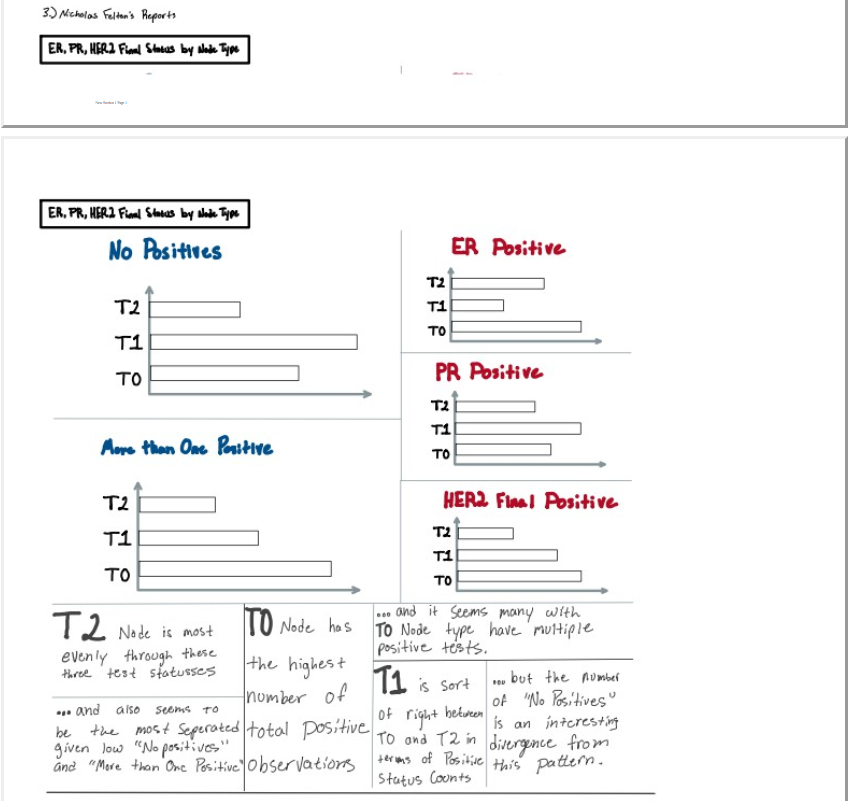 3.) Nicholas Felton's Reports
ER, PR, HER2 Final Status by Node Type
ER, PR, HER2 Final Status by Node Type
No Positives
T2
T1
T0
ER Positive
T2
T1
T0
PR Positive
T2
T1
T0
More than One Positive
T2
T1
T0
HER2 Final Positive
T2
T1
T0
T2 Node is most
evenly through these
three test statusses
... and also seems to
be the most Seperated
given low "No positives"
and "More than One Positive"
T0 Node has
the highest
number of
total positive
observations
... and it seems many with
T0 Node type have multiple
positive tests.
T1 is sort
of right between
T0 and T2 in
terms of Positive
Status Counts
... but the number
of "No Positives"
is an interesting
divergence from
this pattern.